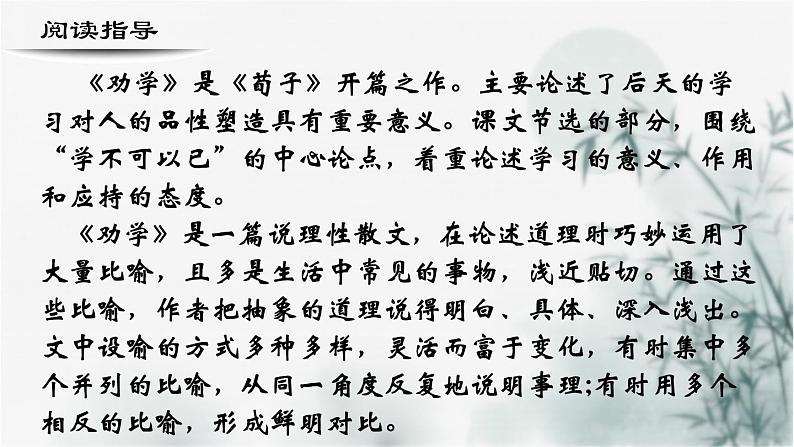 阅读指导
《劝学》是《荀子》开篇之作。主要论述了后天的学
习对人的品性塑造具有重要意义。课文节选的部分，围绕
“学不可以已”的中心论点，着重论述学习的意义、作用
和应持的态度。
《劝学》是一篇说理性散文，在论述道理时巧妙运用了
大量比喻，且多是生活中常见的事物，浅近贴切。通过这
些比喻，作者把抽象的道理说得明白、具体、深入浅出。
文中设喻的方式多种多样，灵活而富于变化，有时集中多
个并列的比喻，从同一角度反复地说明事理;有时用多个
相反的比喻，形成鲜明对比。